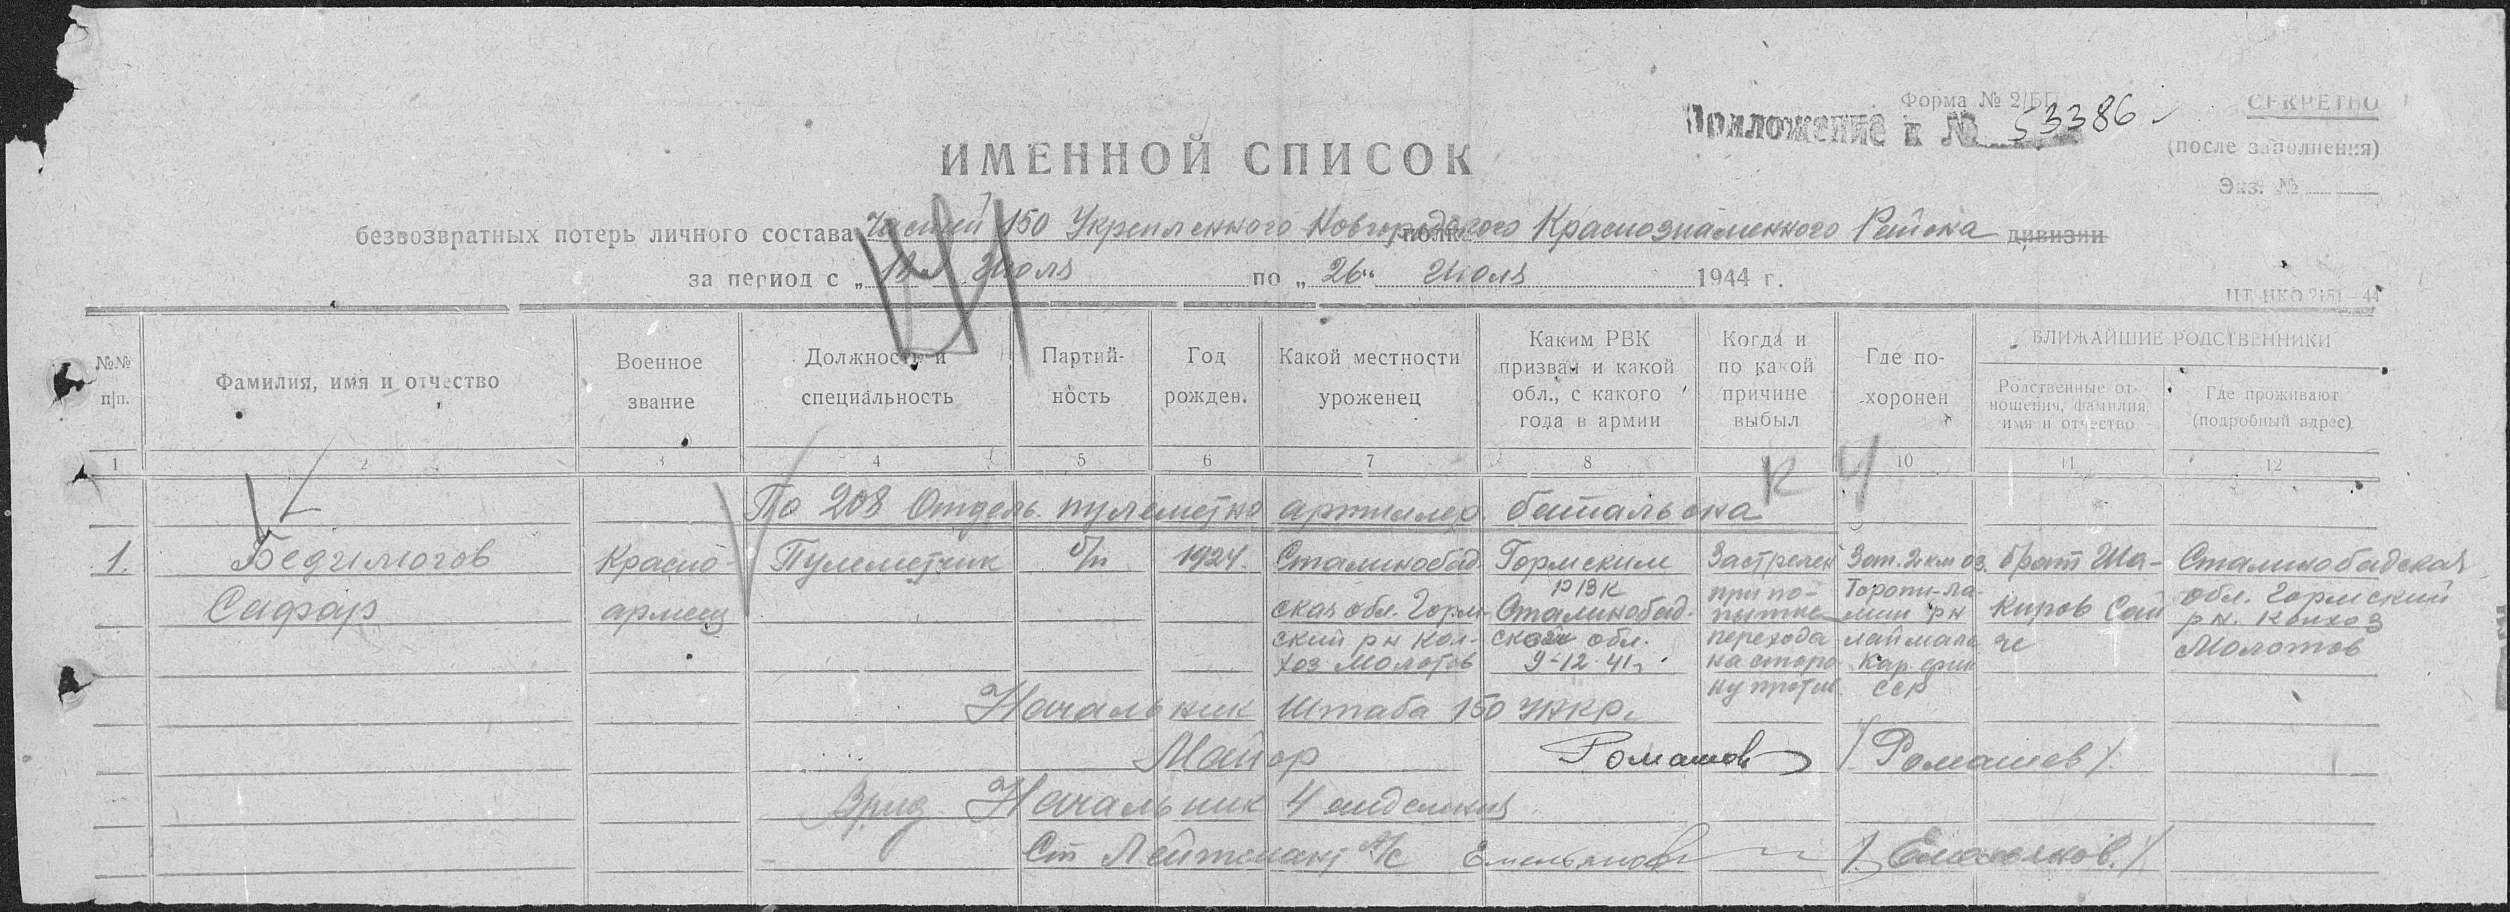 Форма № 2/БП
СЕКРЕТНО
Приложение к № 53386
(после заполнения)
Экз. №
ИМЕННОЙ СПИСОК
безвозвратных потерь личного состава Частей 150 Укрепленного Новгородского полка Краснознаменного Района дивизии
за период с „ Июля по „26" Июля 1944 г.
№№ п/п.
Фамилия, имя и отчество
Военное звание
Должность и специальность
Партий-
ность
Год рожден.
Какой местности уроженец
Каким РВК
призван и какой
обл., с какого
года в армии
Когда и
по какой
причине
выбыл
Где по-
хоронен
БЛИЖАЙШИЕ РОДСТВЕННИКИ
Родственные от-
ношения, фамилия,
имя и отчество
Где проживают
(подробный адрес)
1 2 3 4 5 6 7 8 10 11 12
К Ч
По 208 Отдель. пулеметно артиллер. батальона
1.
Бедимогов
Сафар
Красно-
армеец
Пулеметчик
б/п
1924.
Сталинобад.
ская обл. Горм-
ский рн кол-
хоз Молотов
Гормским
РВК
Сталинобад.
ской обл.
9-12-41г.
Застрелен
при по-
пытке
перехода
на сторо
ну против
Зап. 2 км оз.
Торопи-ла-
мпи рн
Кар. фин
ССР
брат Ша-
киров Сай
Сталинобадская
обл. Гормский
рн. колхоз
Молотов
Начальник Штаба 150 НКР.
Майор Ромашов /Ромашев/.
Врид Начальник 4 отделения
Ст Лейтенант а/с Емельянов /Емельянов./